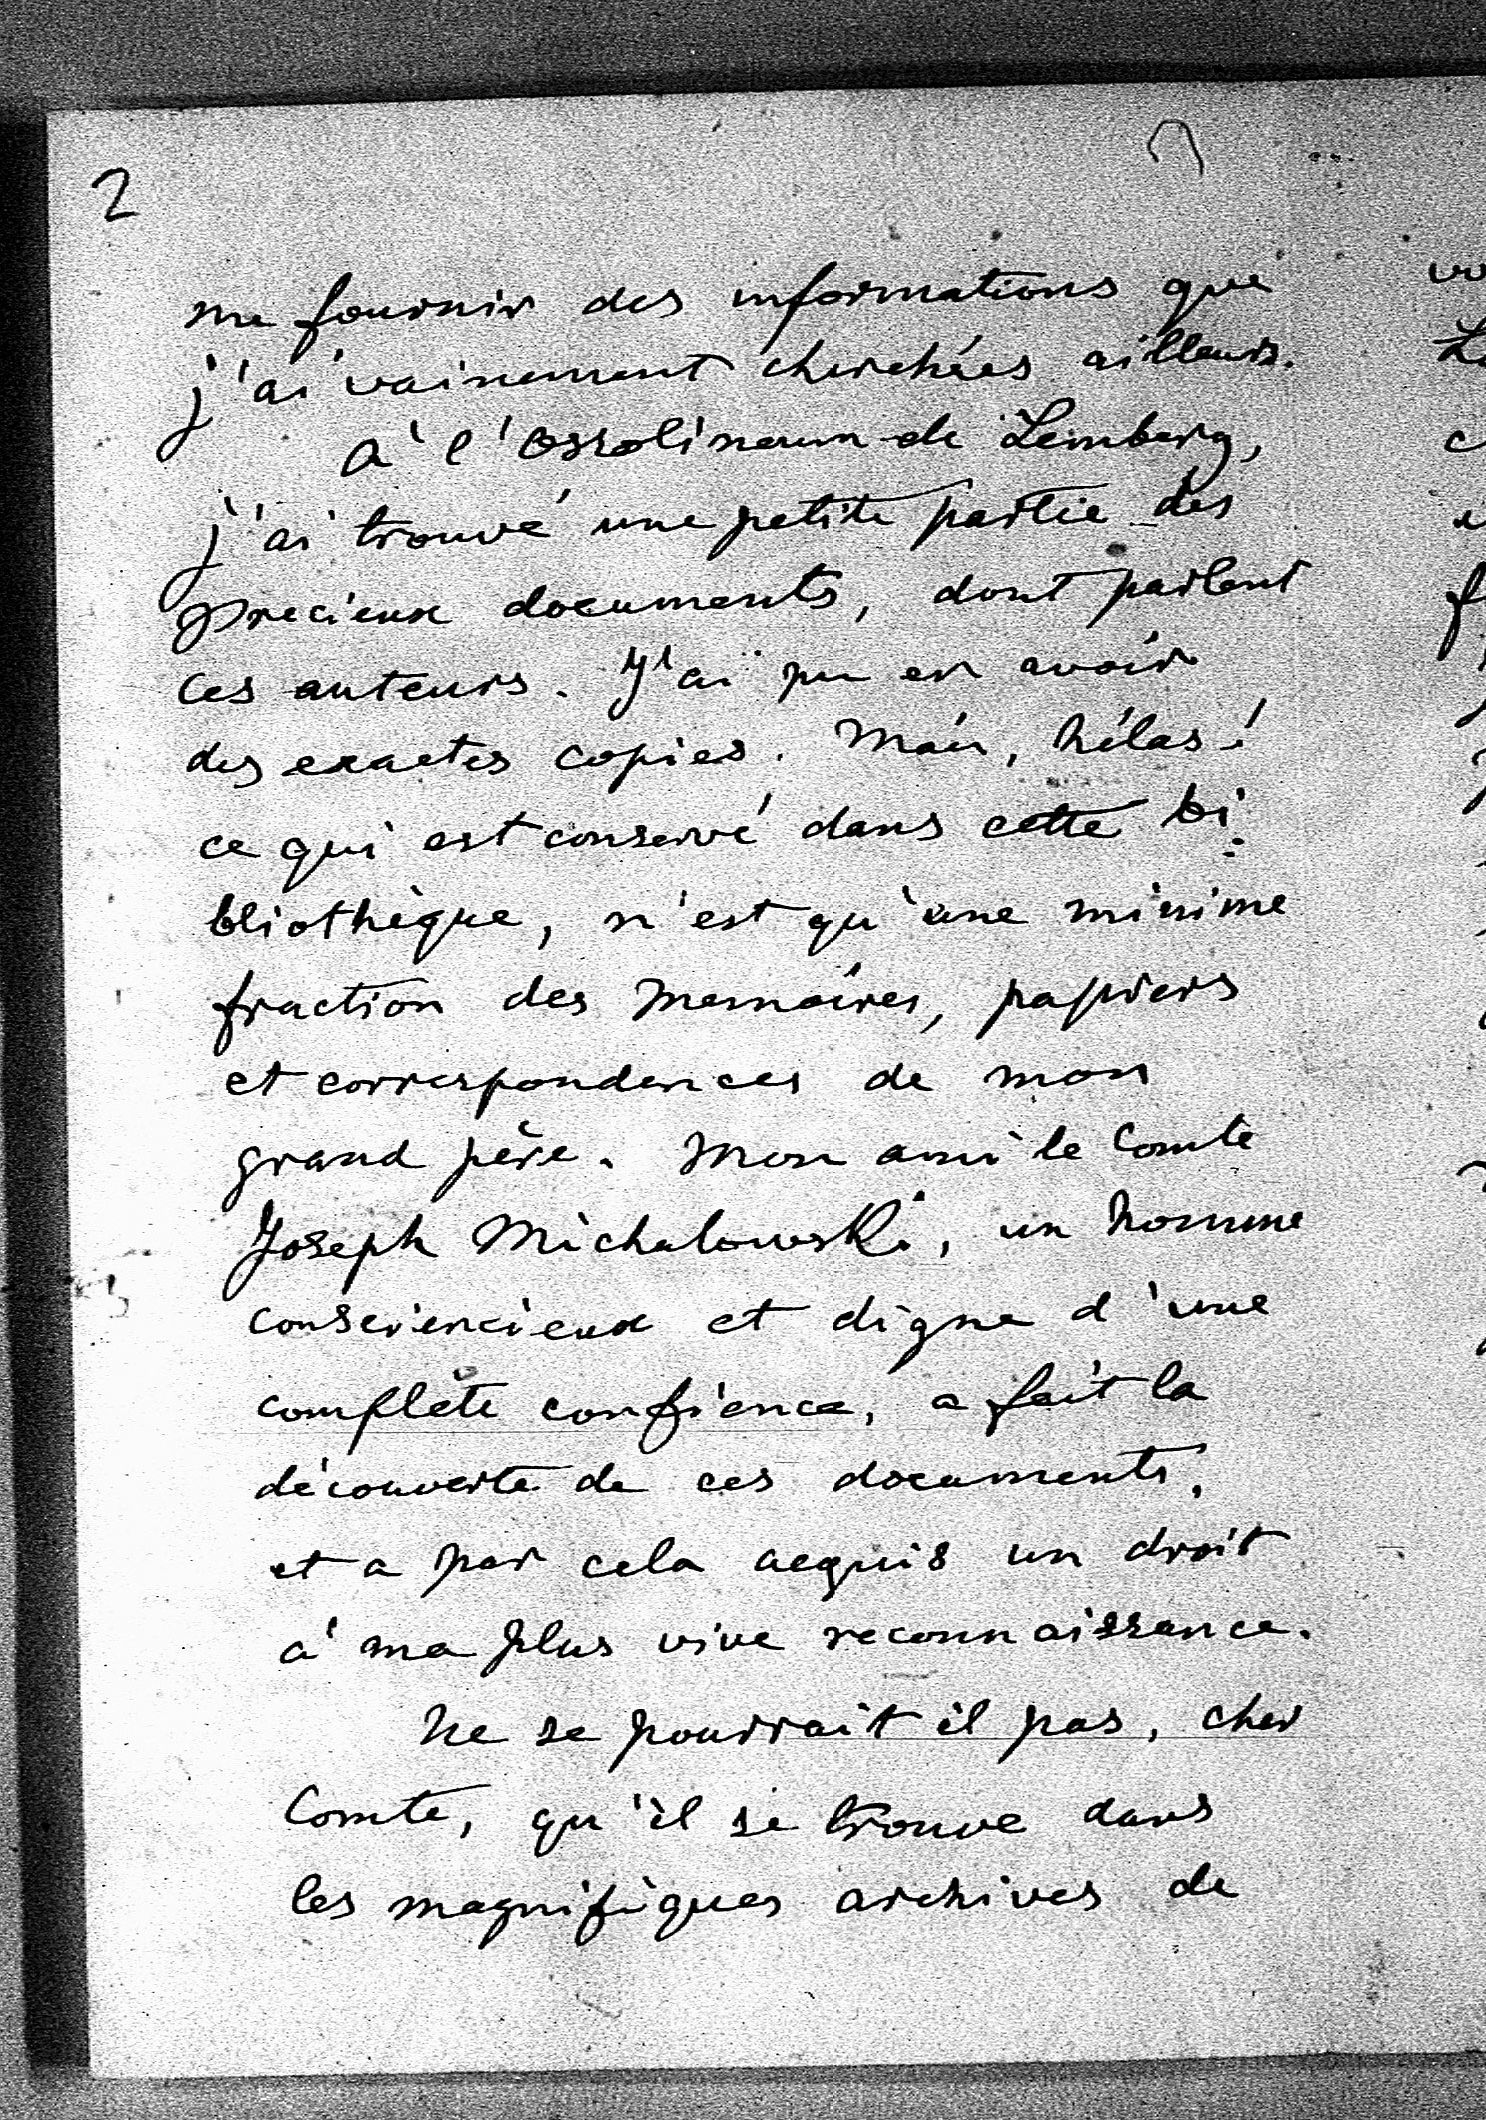 2
me fournir des informations que
j'ai vainement cherchées ailleurs.
à l'Ossolineum de Lemberg,
j'ai trouvé une petite partie des
precieux documents, dont parlent
ces auteurs. J'ai pu en avoir
des exactes copies. Mais, hélas!
ce qui est conservé dans cette bi:
bliothèque, n'est qu'une minime
fraction des memoires, papiers
et correspondences de mon
grand père. Mon ami le Comte
Joseph Michalowski, un homme
consciencieux et digne d'une
complète confience, a fait la
découverte de ces documents,
et a par cela acquis un droit
à ma plus vive reconnaissance.
Ne se pourrait il pas, cher
Comte, qu'il se trouve dans
les magnifiques archives de